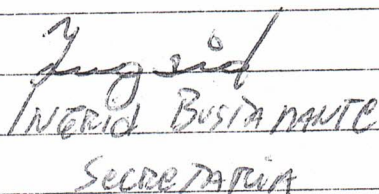 Ingrid
INGRID BUSTAMANTE
SECRETARIA